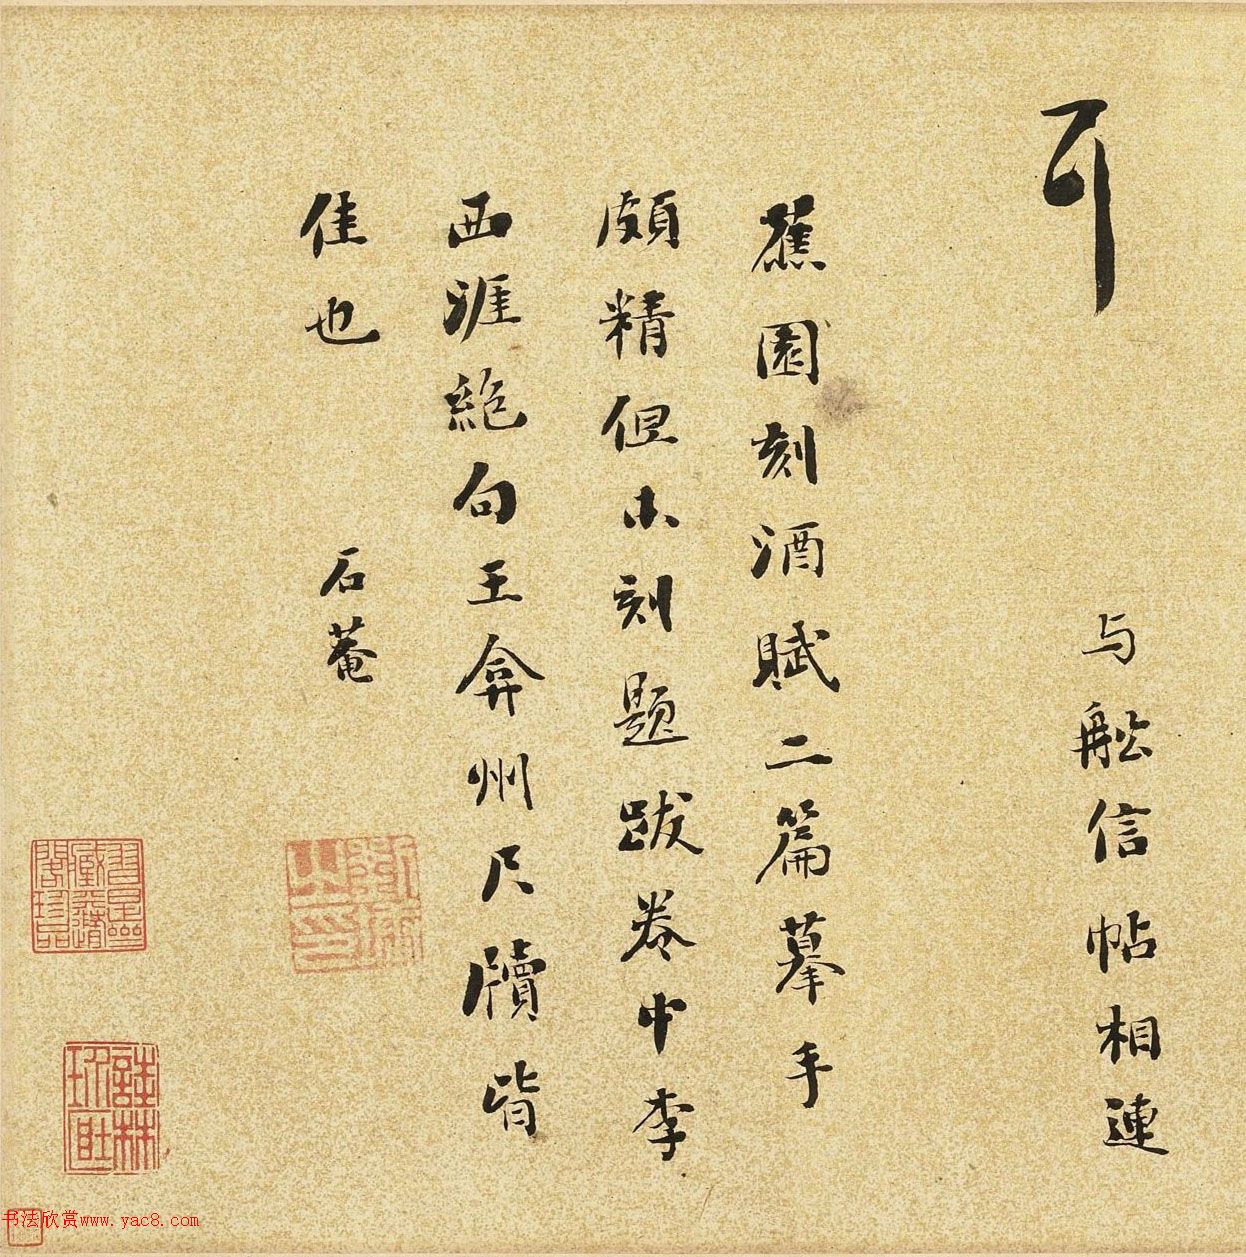 耳
与舩信帖相連
蕉園刻酒賦二篇摹手
頗精但未刻題跋卷中李
西涯絕句王弇州尺牘皆
佳也
石菴
劉墉之印
书法欣赏www.yac8.com